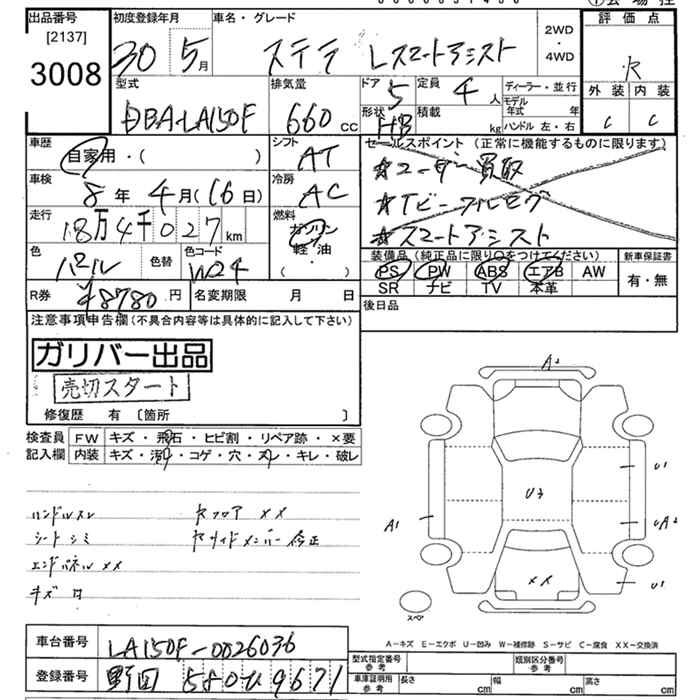 出品番号 [2137] 3008
初度登録年月 30 5月
車名・グレード ステラ Lスマートアシスト
2WD・4WD
評価点 R
外装 内装
C C
型式 DBA-LA150F
排気量 660 cc
ドア 5
定員 4人
形状 HB
積載 kg
ディーラー・並行
モデル年式 年
ハンドル 左・右
車歴 自家用・( )
シフト AT
車検 8年4月(16日)
冷房 AC
走行 18万4千027km
燃料 ガソリン 軽・油 ・( )
色 パール 色替
色コード W24
R券 ¥8780円
名変期限 月 日
セールスポイント (正常に機能するものに限ります)
☆ユーザー買取
☆TVフルセグ
☆スマートアシスト
装備品(純正品に限り○をつけてください)
PS PW ABS エアB AW
SR ナビ TV 本革
新車保証書
有・無
後日品
注意事項申告欄(不具合内容等は具体的に記入して下さい)
ガリバー出品
売切スタート
修復歴 有 〔箇所 〕
検査員 FW キズ・飛石・ヒビ割・リペア跡・×要
記入欄 内装 キズ・汚れ・コゲ・穴・スレ・キレ・破レ
ハンドルスレ
シートシミ
エンドパネル ××
キズ
ヤフロア ××
ヤサイドメンバー修正
A2
U1
U3
A1
UA2
××
U1
スペア
A-キズ E-エクボ U-凹み W-補修跡 S-サビ C-腐食 XX-交換済
車台番号 LA150F-0026036
登録番号 野田 580 9671
型式指定番号 参考
類別区分番号 参考
車庫証明用 参考 長さ cm 幅 cm 高さ cm